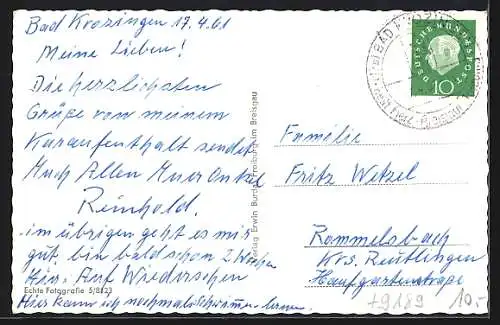 Bad Krozingen 17.4.61
Meine Lieben!
Die herzlichsten
Grüße von meinem
Kuraufenthalt sendet
Euch Allen Euer Onkel
Reinhold.
im übrigen geht es mir
gut bin bald schon 2 Wochen
hier. Auf Wiedersehen
Echte Fotografie 5/8123
Hier kann ich nochmal schwimmen lernen.
Verlag Erwin Burda, Freiburg im Breisgau
BAD KROZINGEN
DEUTSCHE BUNDESPOST
10
Familie
Fritz Wetzel
Rommelsbach
Krs. Reutlingen
Haufgartenstraße
+9189 10.-